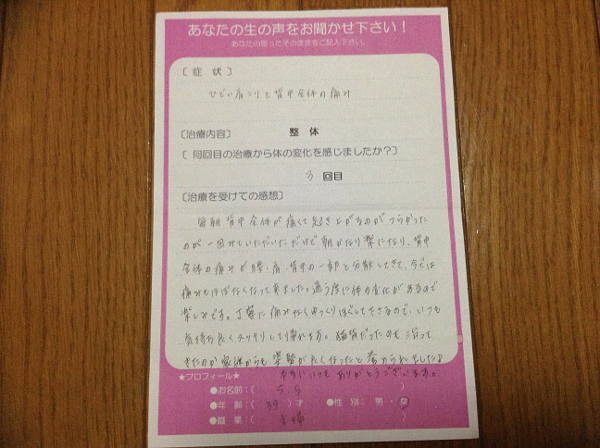 あなたの生の声をお聞かせ下さい！
あなたの思ったそのままをご記入下さい。
〔 症 状 〕
ひどい肩コリと背中全体の痛み
〔治療内容〕 整 体
〔 何回目の治療から体の変化を感じましたか？〕
3 回目
〔治療を受けての感想〕
毎朝 背中全体が痛くて起き上がるのがつらかった
のが 一回みていただいただけで 朝がかなり楽になり、背中
全体の痛みが腰・肩・背中の一部と分散してきて、今では
痛みもほぼなくなって来ました。通う度に体の変化があるので
楽しみです。丁寧に痛みなくゆっくりほぐして下さるので、いつも
気持ち良くスッキリして帰れます。猫背だったのも治って
きたのか家族からも姿勢が良くなったと誉められました♪
本当にいつもありがとうございます。
★プロフィール★
●お名前：（ S.S ）
●年 齢：（ 39 ）才 ●性 別： 男 ・ 女
●職 業：（ 主婦 ）